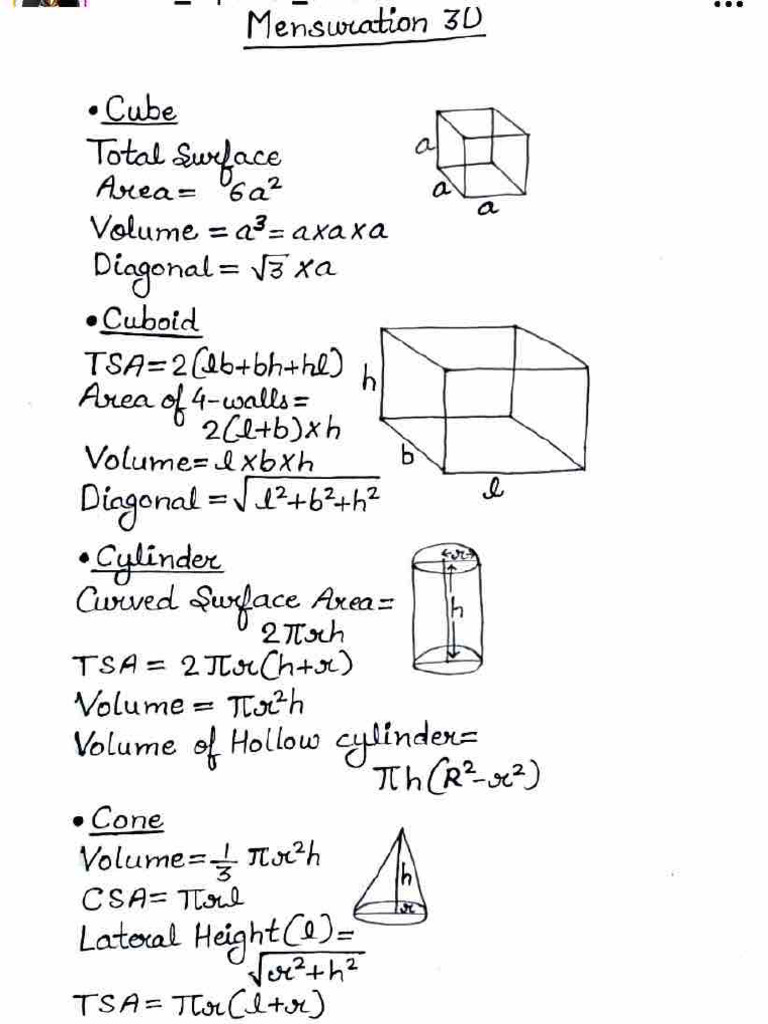 Mensuration 3D
• Cube
Total Surface
Area = 6a²
Volume = a³ = a×a×a
Diagonal = √3 × a
a
a
a
• Cuboid
TSA = 2(lb+bh+hl)
Area of 4-walls =
2(l+b)×h
Volume = l×b×h
Diagonal = √l²+b²+h²
h
b
l
• Cylinder
Curved Surface Area =
2πrh
TSA = 2πr(h+r)
Volume = πr²h
Volume of Hollow cylinder =
πh(R²-r²)
r
h
• Cone
Volume = 1/3 πr²h
CSA = πrl
Lateral Height(l) =
√r²+h²
TSA = πr(l+r)
h
r